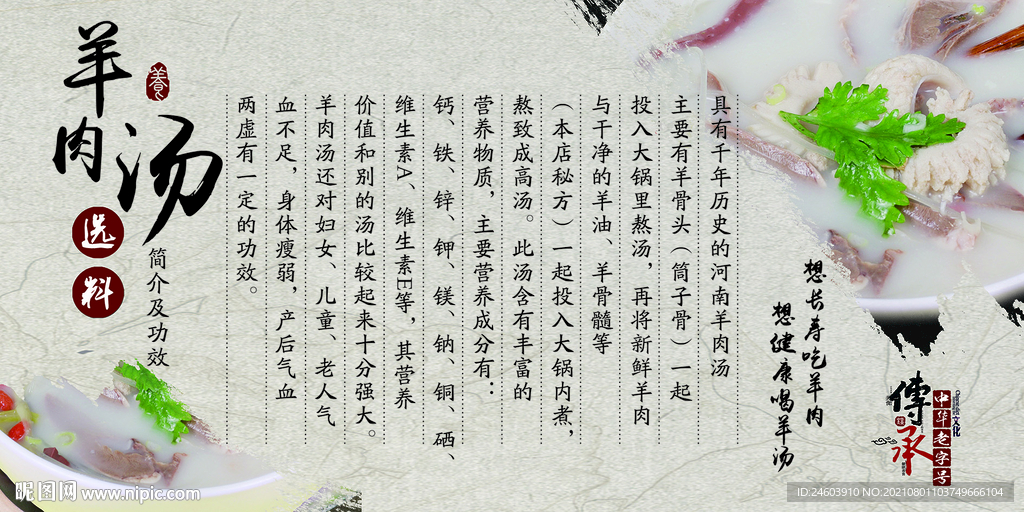 羊肉汤
養
选料
简介及功效
想长寿吃羊肉
想健康喝羊汤
具有千年历史的河南羊肉汤
主要有羊骨头（筒子骨）一起
投入大锅里熬汤，再将新鲜羊肉
与干净的羊油、羊骨髓等
（本店秘方）一起投入大锅内煮，
熬致成高汤。此汤含有丰富的
营养物质，主要营养成分有：
钙、铁、锌、钾、镁、钠、铜、硒、
维生素A、维生素E等，其营养
价值和别的汤比较起来十分强大。
羊肉汤还对妇女、儿童、老人气
血不足，身体瘦弱，产后气血
两虚有一定的功效。
傳承
文化
中华老字号
昵图网 www.nipic.com
ID:24603910 NO:20210801103749666104